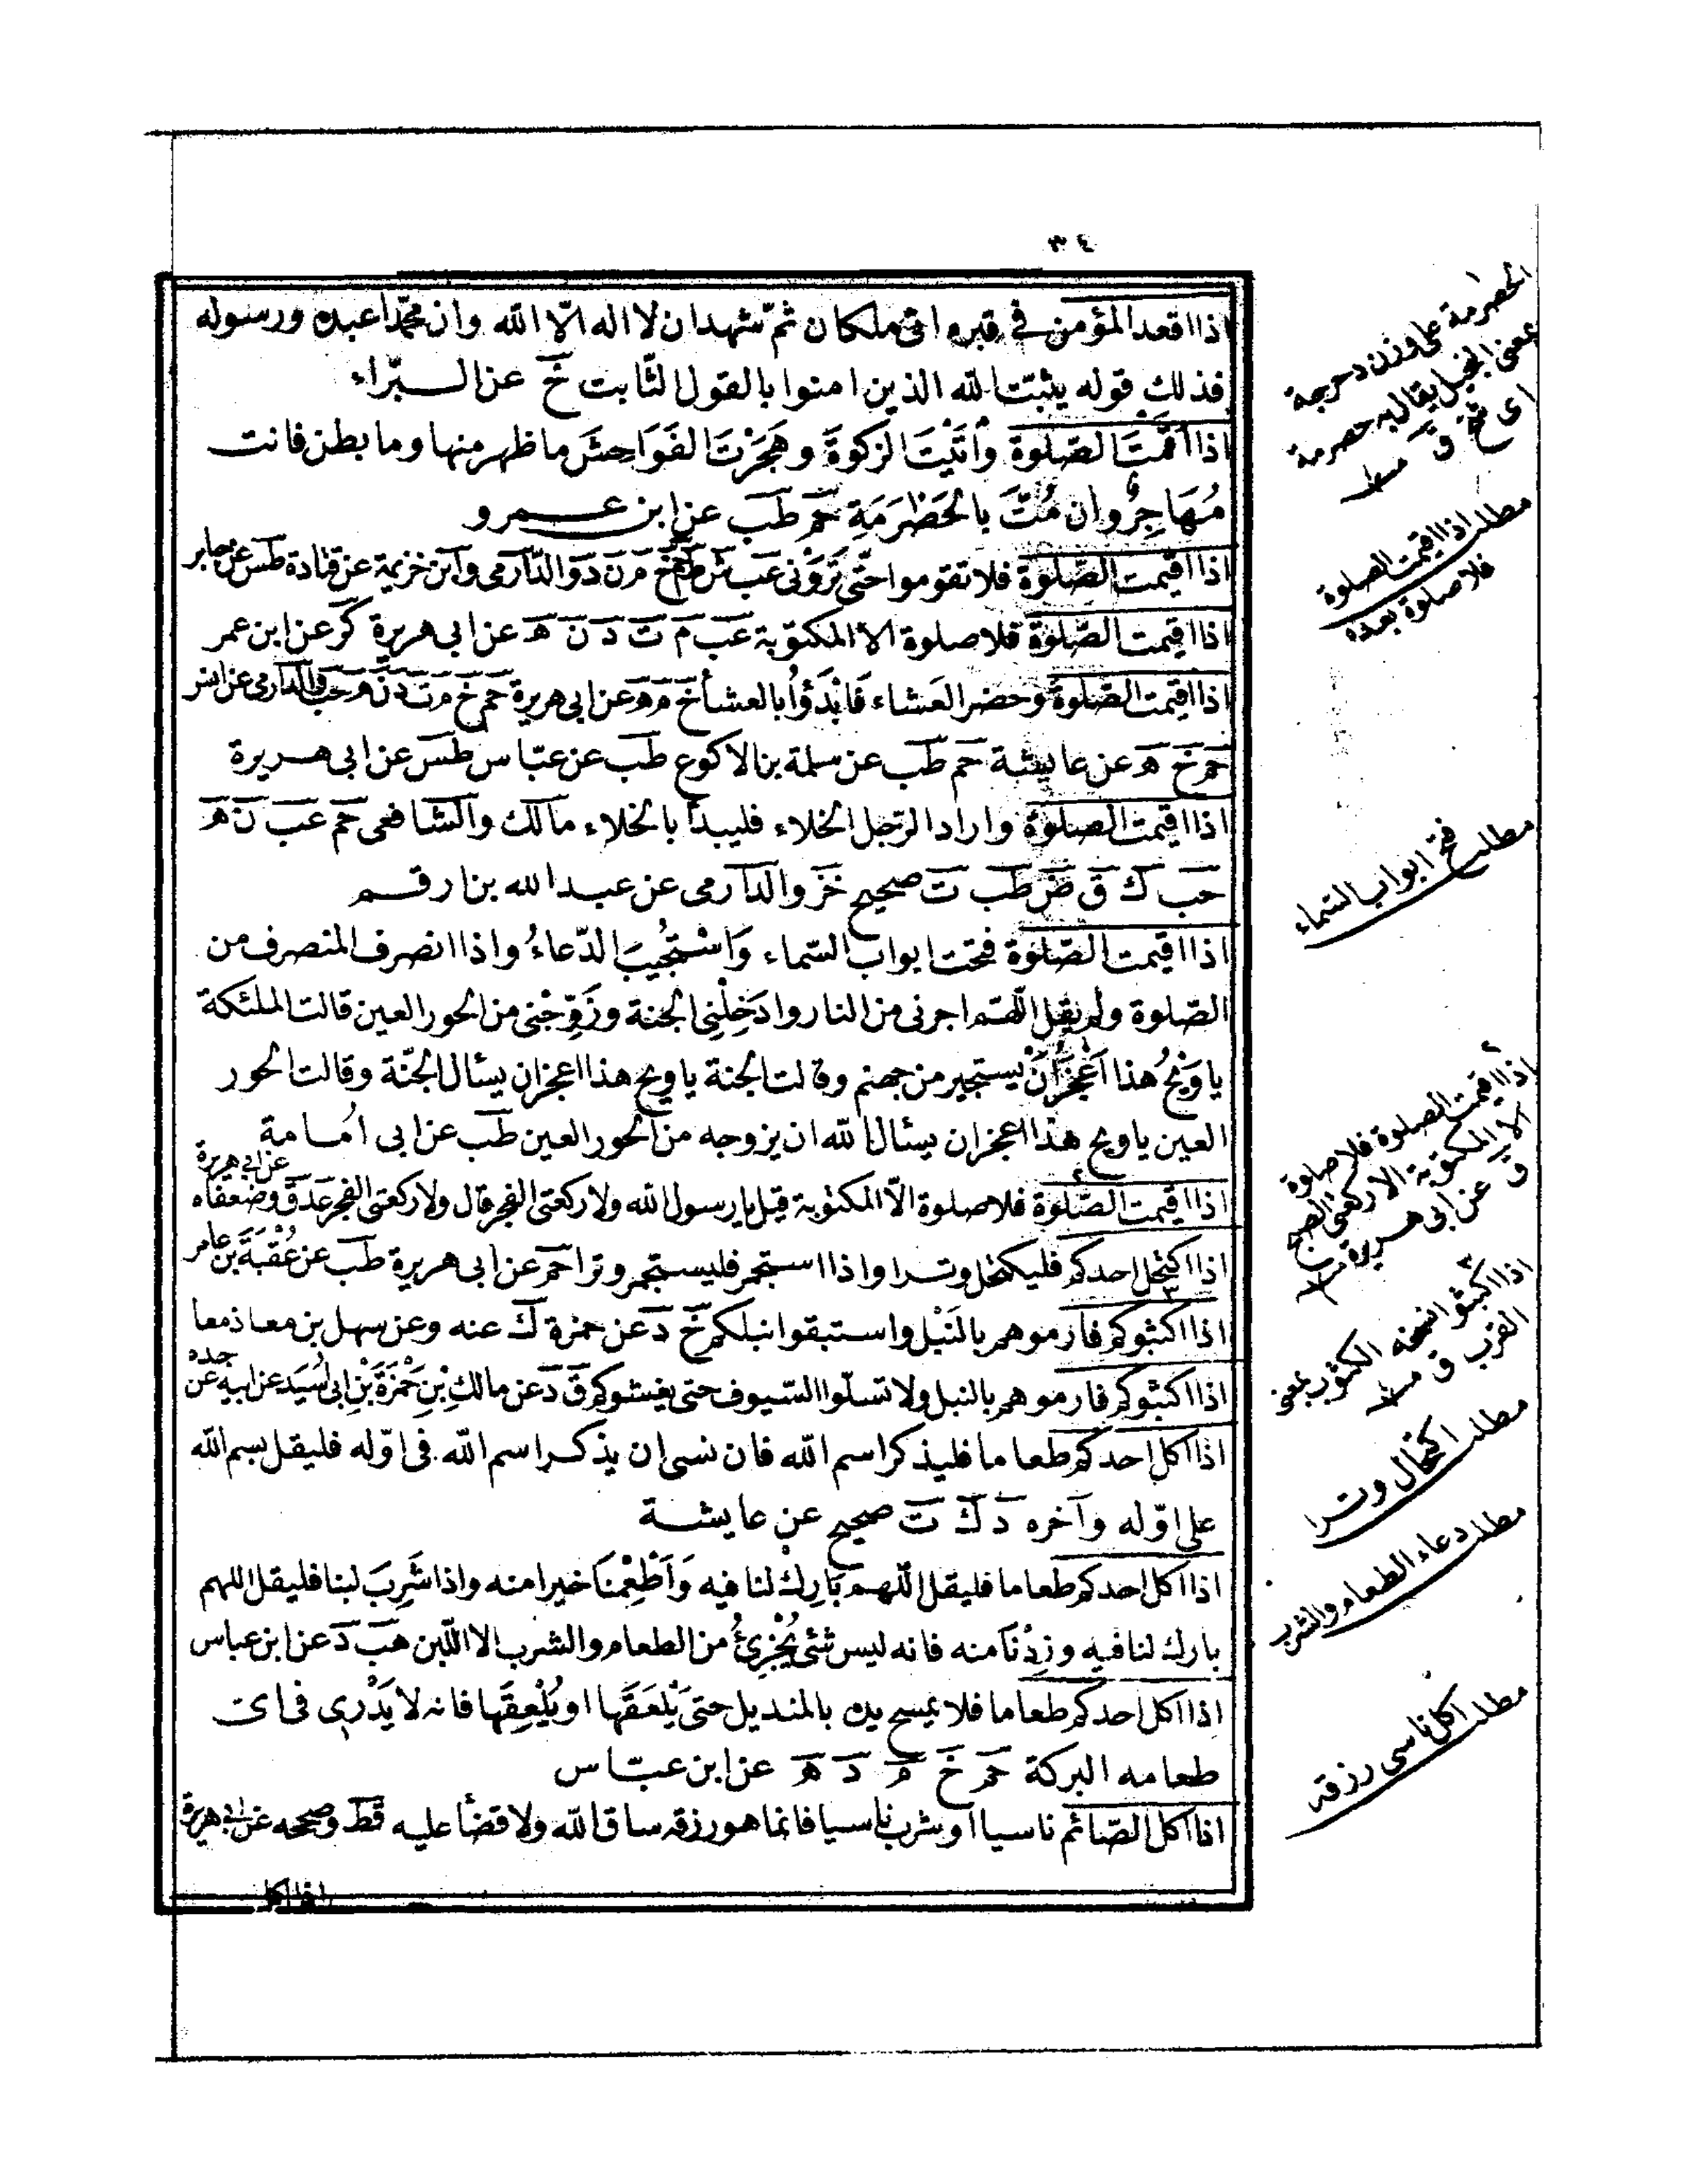 ٣٤
اذا اقعد المؤمن فى قبره اتى ملكان ثم شهد ان لا اله الا الله وان محمدا عبده ورسوله
فذلك قوله يثبت الله الذين امنوا بالقول الثابت خ عن البراء
اذا اقمت الصلوة وأتيت الزكوة وهجرت الفواحش ما ظهر منها وما بطن فانت
مهاجر وان مت بالحضرمة حم طب عن ابن عمرو
اذا اقيمت الصلوة فلا تقوموا حتى ترونى عب ش حم خ م ن د والدارمى وابن خزيمة عن قتادة طس عن جابر
اذا اقيمت الصلوة فلا صلوة الا المكتوبة عب م ت د ن ه عن ابى هريرة كر عن ابن عمر
اذا اقيمت الصلوة وحضر العشاء فابدؤا بالعشأ خ م ه عن ابى هريرة حم خ م ت د ن ه حب والدارمى عن انس
حم خ ه عن عايشة حم طب عن سلمة بن الاكوع طب عن عباس طس عن ابى هريرة
اذا اقيمت الصلوة واراد الرجل الخلاء فليبدأ بالخلاء مالك والشافعى حم عب ن ه
حب ك ق ض طب ت صحيح خز والدارمى عن عبد الله بن ارقم
اذا اقيمت الصلوة فتحت ابواب السماء واستجيب الدعاء واذا انصرف المنصرف من
الصلوة ولم يقل اللهم اجرنى من النار وادخلنى الجنة وزوجنى من الحور العين قالت الملئكة
يا ويح هذا اعجز ان يستجير من جهنم وقالت الجنة يا ويح هذا اعجز ان يسئال الجنة وقالت الحور
العين يا ويح هذا اعجز ان يسئال الله ان يزوجه من الحور العين طب عن ابى امامة
اذا اقيمت الصلوة فلا صلوة الا المكتوبة قيل يا رسول الله ولا ركعتى الفجر قال ولا ركعتى الفجر عد ق وضعفاه عن ابى هريرة
اذا اكتحل احدكم فليكتحل وترا واذا استجمر فليستجمر وترا حم عن ابى هريرة طب عن عقبة بن عامر
اذا اكثبوكم فارموهم بالنبل واستبقوا نبلكم خ د عن حمزة ك عنه وعن سهل بن معاذ معا
اذا اكثبوكم فارموهم بالنبل ولا تسلوا السيوف حتى يغشوكم ق د عن مالك بن حمزة بن ابى اسيد عن ابيه عن جده
اذا اكل احدكم طعاما فليذكر اسم الله فان نسى ان يذكر اسم الله فى اوله فليقل بسم الله
على اوله وآخره د ك ت صحيح عن عايشة
اذا اكل احدكم طعاما فليقل اللهم بارك لنا فيه وأطعمنا خيرا منه واذا شرب لبنا فليقل اللهم
بارك لنا فيه وزدنا منه فانه ليس شئ يجزئ من الطعام والشرب الا اللبن هب د عن ابن عباس
اذا اكل احدكم طعاما فلا يمسح يده بالمنديل حتى يلعقها او يلعقها فانه لا يدرى فى اى
طعامه البركة حم خ م د ه عن ابن عباس
اذا اكل الصائم ناسيا او شرب ناسيا فانما هو رزقه ساق الله ولا قضأ عليه قط وصححه عن ابى هريرة
اذا اكل
الحضرمة على وزن دحرجة
بمعنى
يقال به حضرمة
اى
مطلب اذا اقيمت الصلوة
فلا صلوة بعده
مطلب فتح ابواب السماء
اذا اقيمت الصلوة فلا صلوة
الا المكتوبة الا ركعتى الصبح
ق عن ابى هريرة
اذا اكثبو نسخه الكثوب بمعنى
القرب ق
مطلب اكتحال وترا
مطلب دعاء الطعام والشرب
مطلب اكل ناسى رزقه